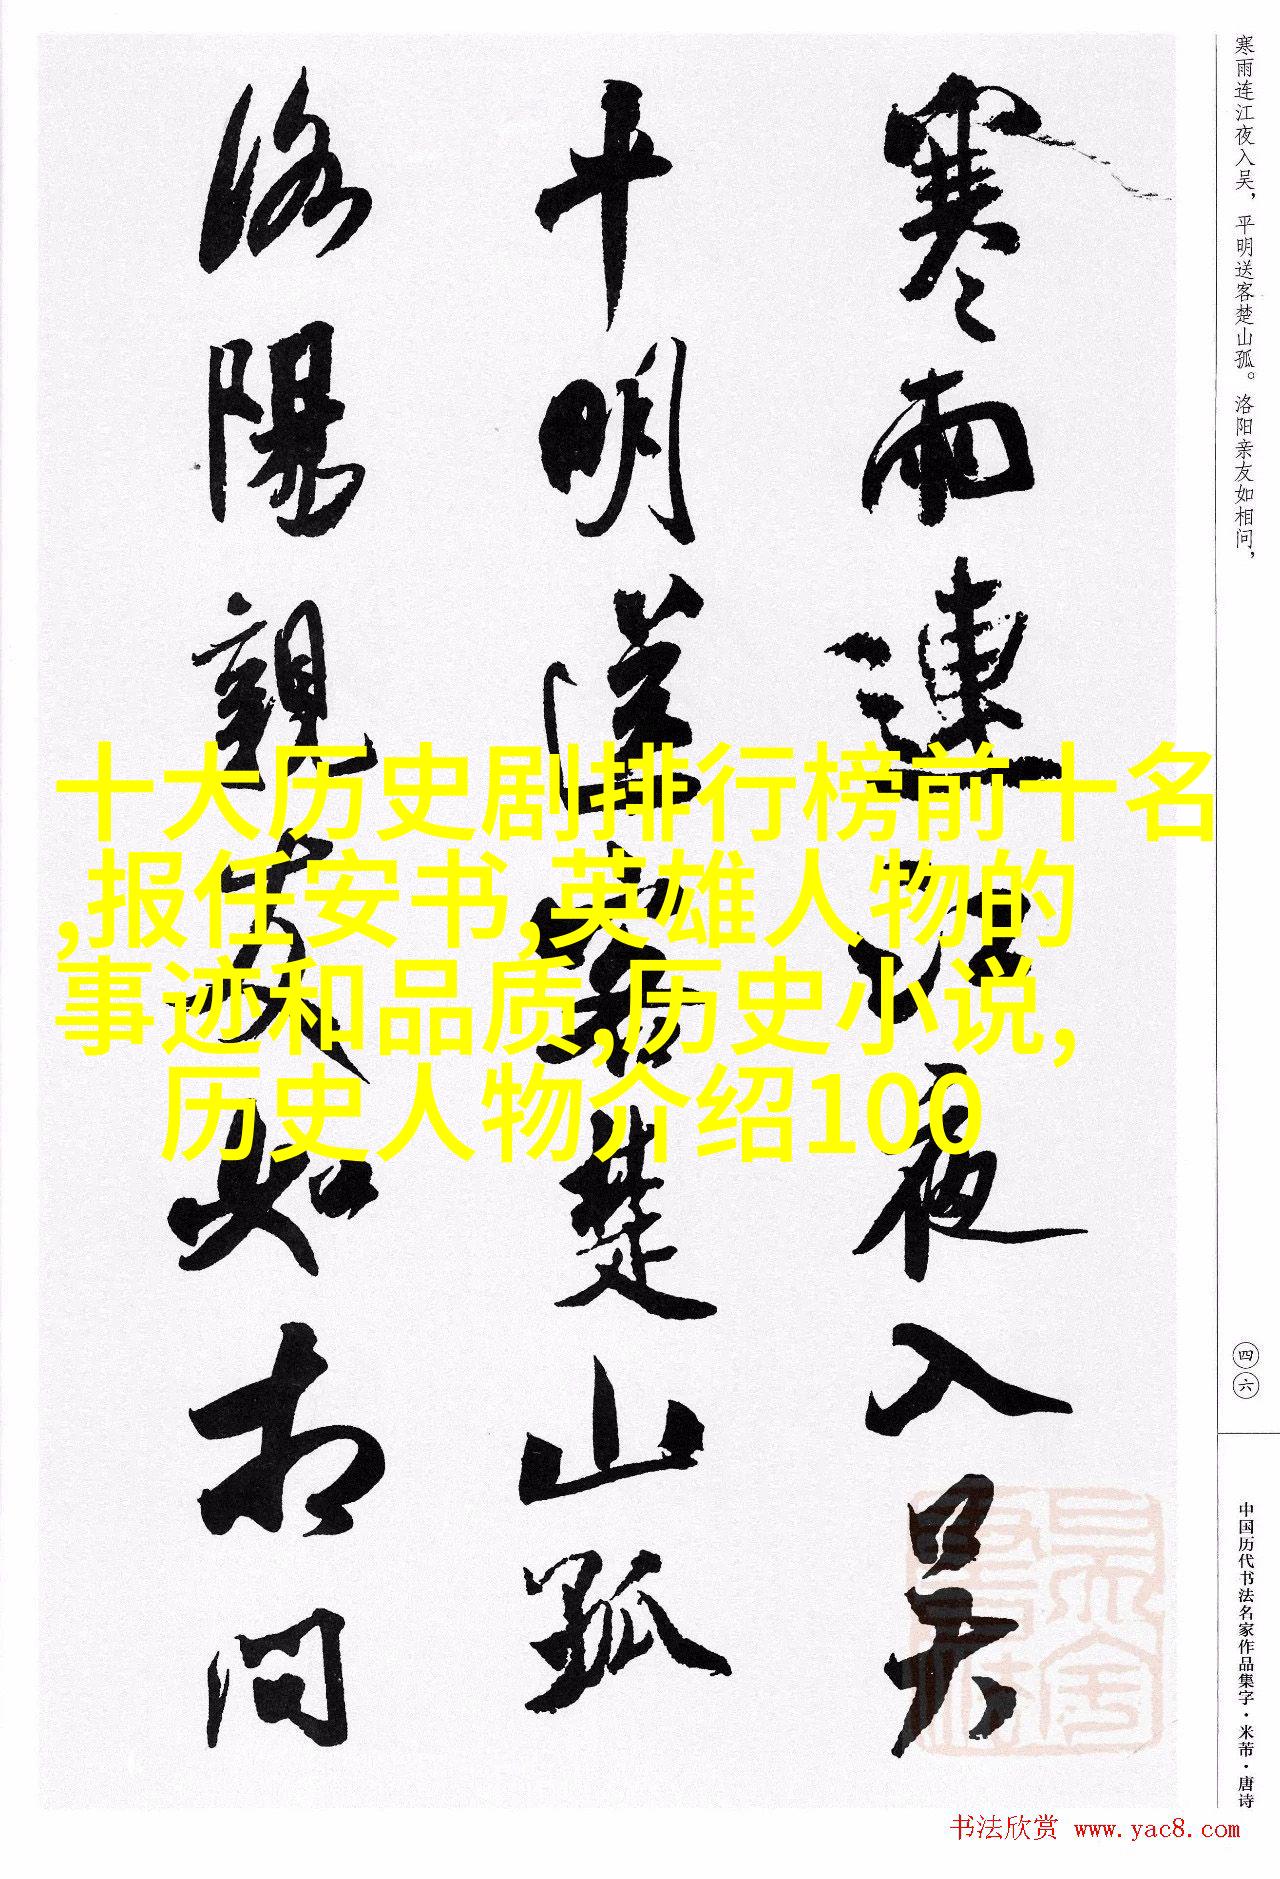 寒雨連江夜入吴
平明送客楚山孤
洛陽親友如相问
十大历史剧排行榜前十名
,报任安书,英雄人物的
事迹和品质,历史小说,
历史人物介绍100
寒雨连江夜入吴，平明送客楚山孤。洛阳亲友如相问，
四六
中国历代书法名家作品集字·米芾·唐诗
书法欣赏 www.yac8.com